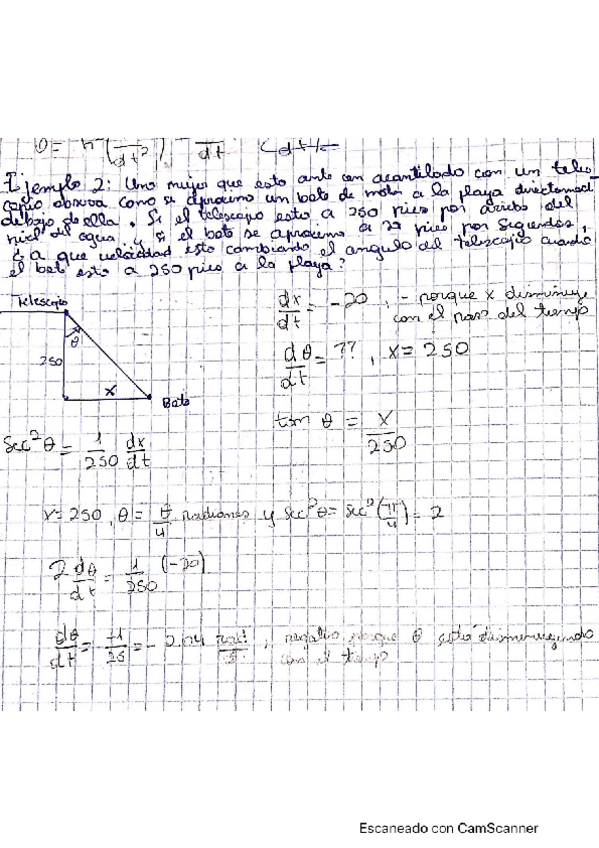 dt² dt
Ejemplo 2: Una mujer que esta ante un acantilado con un teles_
copio observa como se aproxima un bote de motor a la playa directamente
debajo de ella. Si el telescopio esta a 250 pies por arriba del
nivel del agua y si el bote se aproxima a 20 pies por segundos,
¿a que velocidad esta cambiando el angulo del telescopio cuando
el bote esta a 250 pies a la playa?
Telescopio
θ
250
x
Bote
dx/dt = -20, - porque x disminuye
con el paso del tiempo
dθ/dt = ??, x = 250
tan θ = x/250
Sec²θ = 1/250 dx/dt
x = 250, θ = π/4 radianes y sec²θ = sec²(π/4) = 2
2 dθ/dt = 1/250 (-20)
dθ/dt = -1/25 = - 0.04 rad/s, negativo porque θ esta disminuyendo
con el tiempo
Escaneado con CamScanner